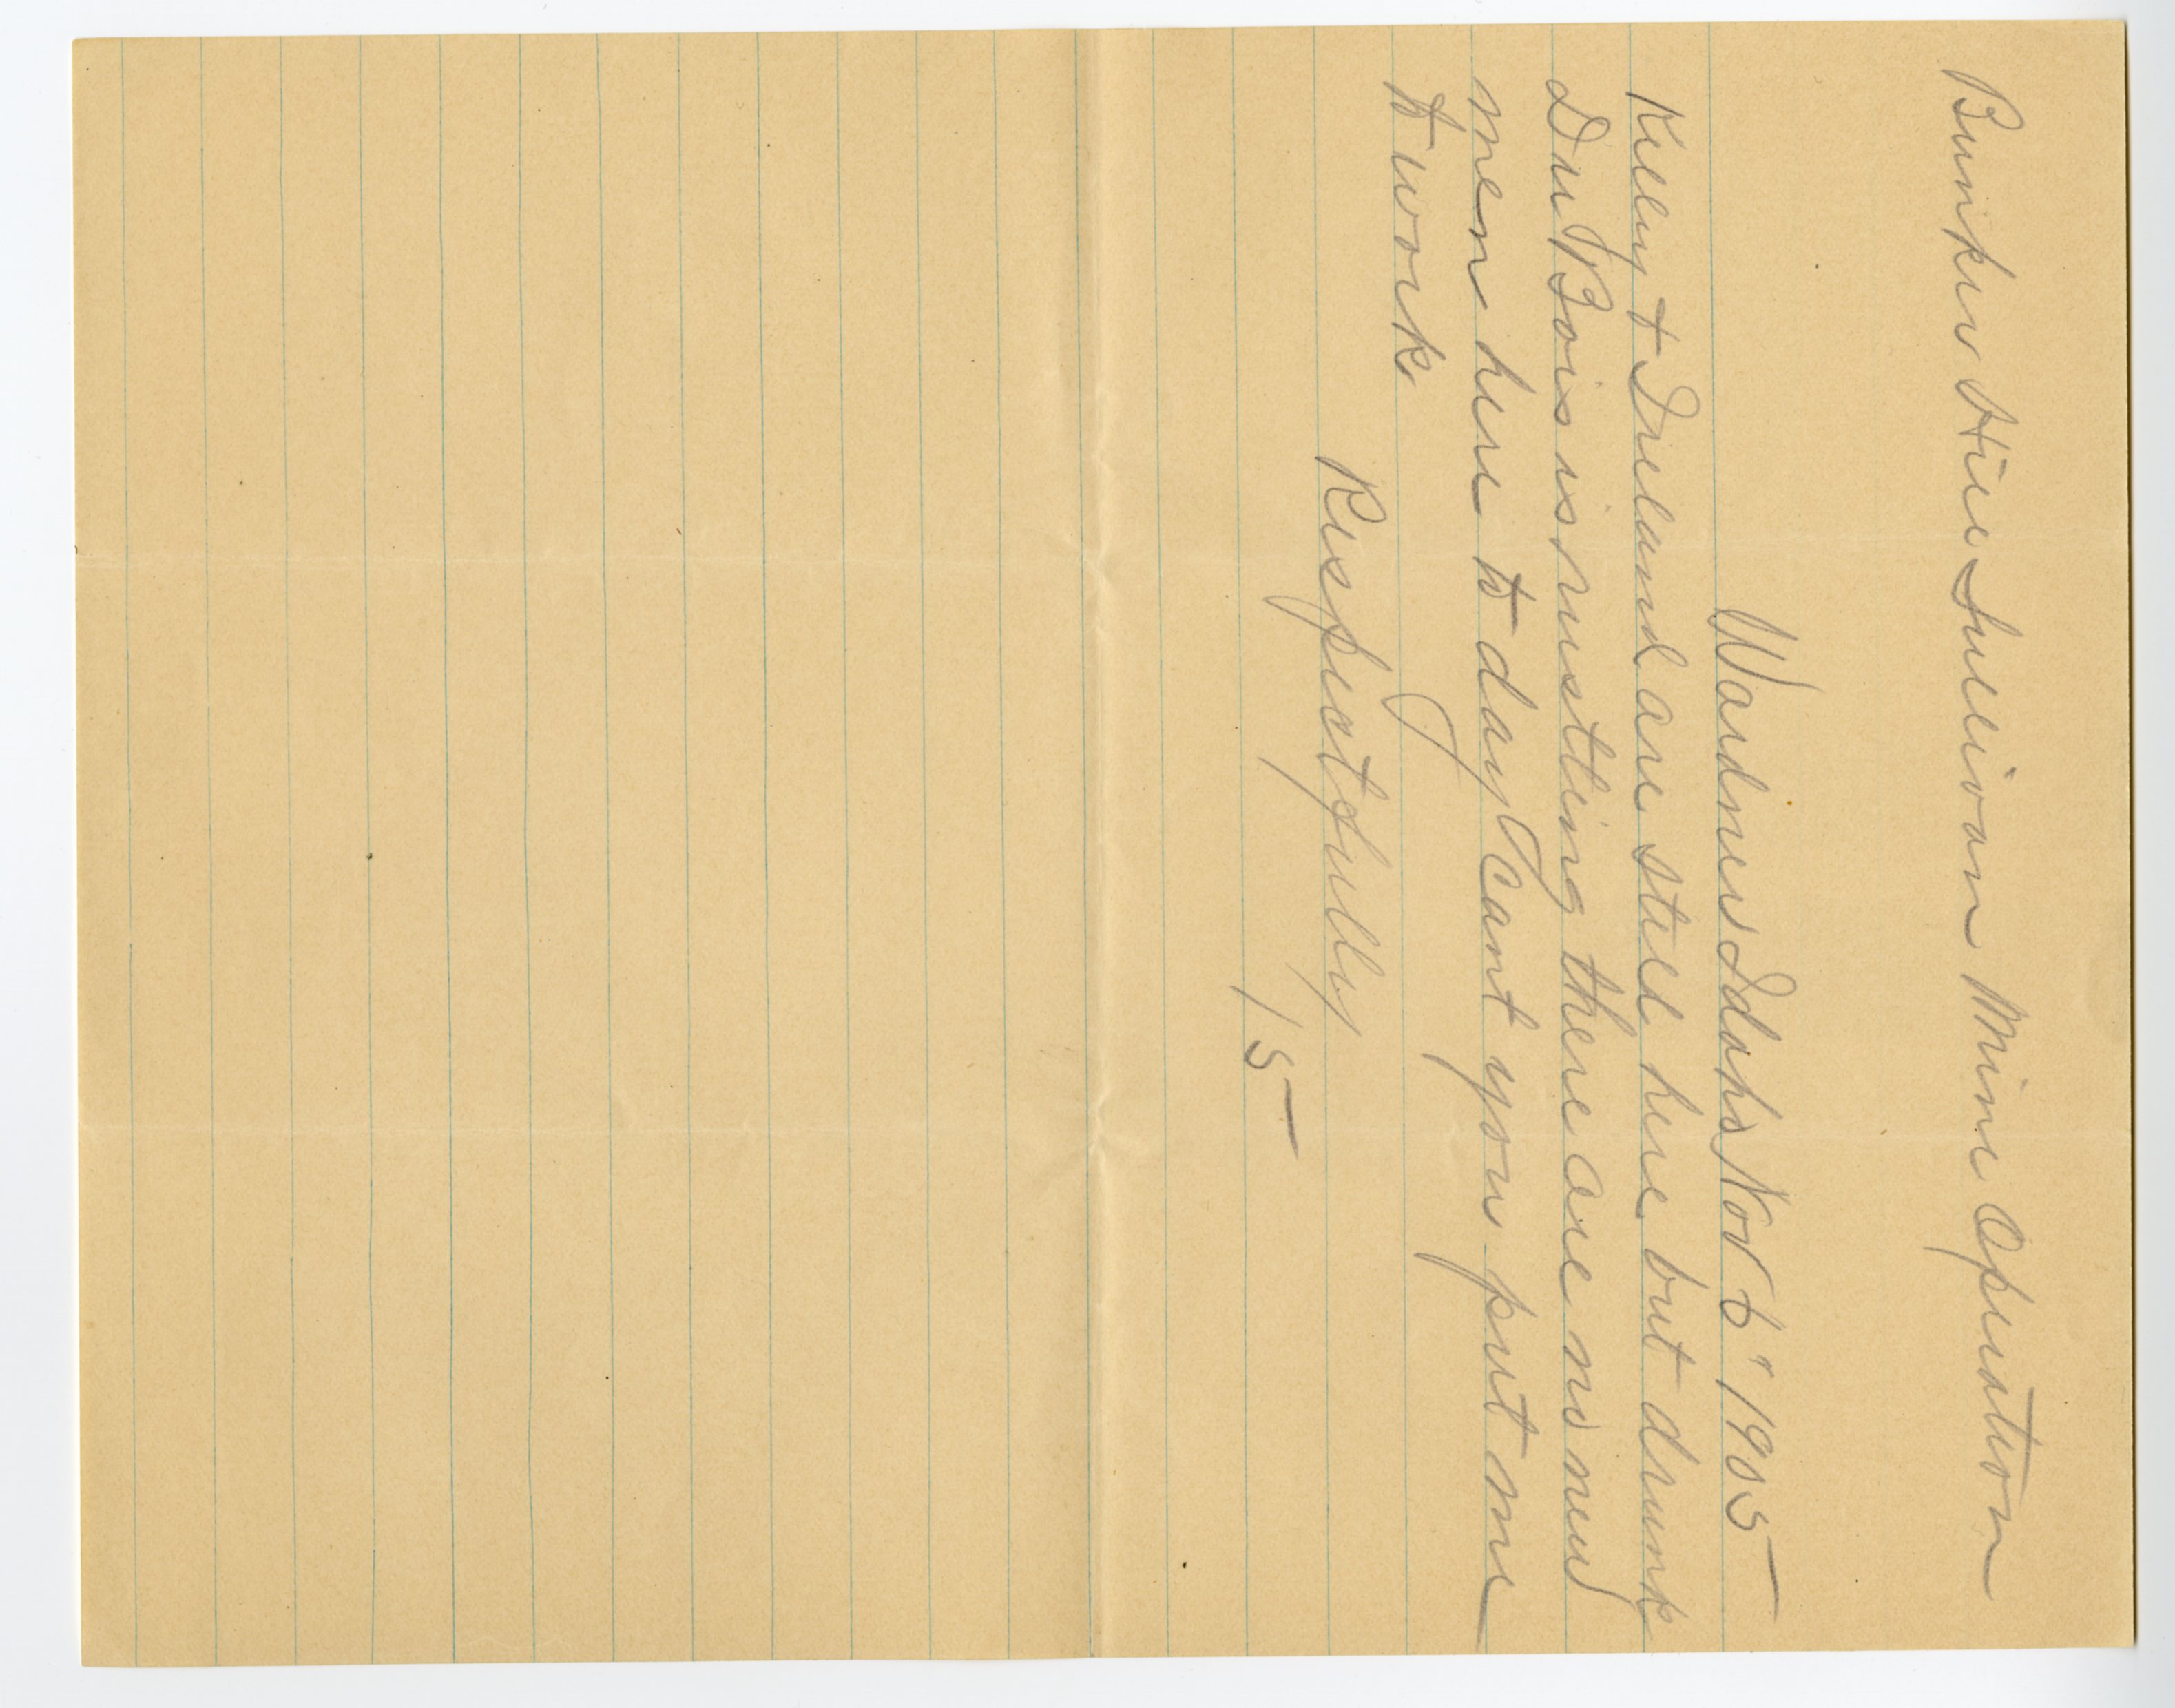 Bunker Hill Sullivan Mine Operation
Wardner Idaho Nov 6" 1905
Kelley + Ireland are still here but drunk
Du Bois is rustling there are no new
men here to day cant you put me
to work
Respectfully
15